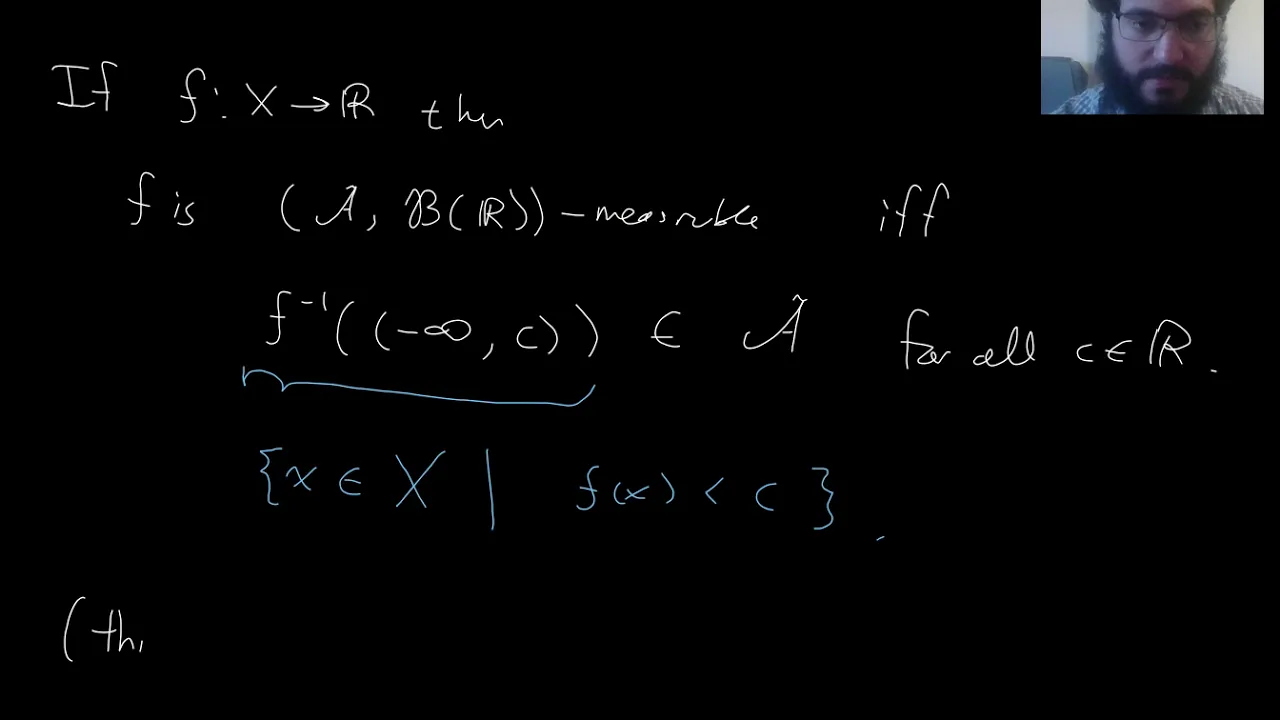 If f: X → ℝ then
f is (𝒜, ℬ(ℝ)) – measurable iff
f⁻¹((-∞, c)) ∈ 𝒜 for all c ∈ ℝ.
{x ∈ X | f(x) < c}.
(thi